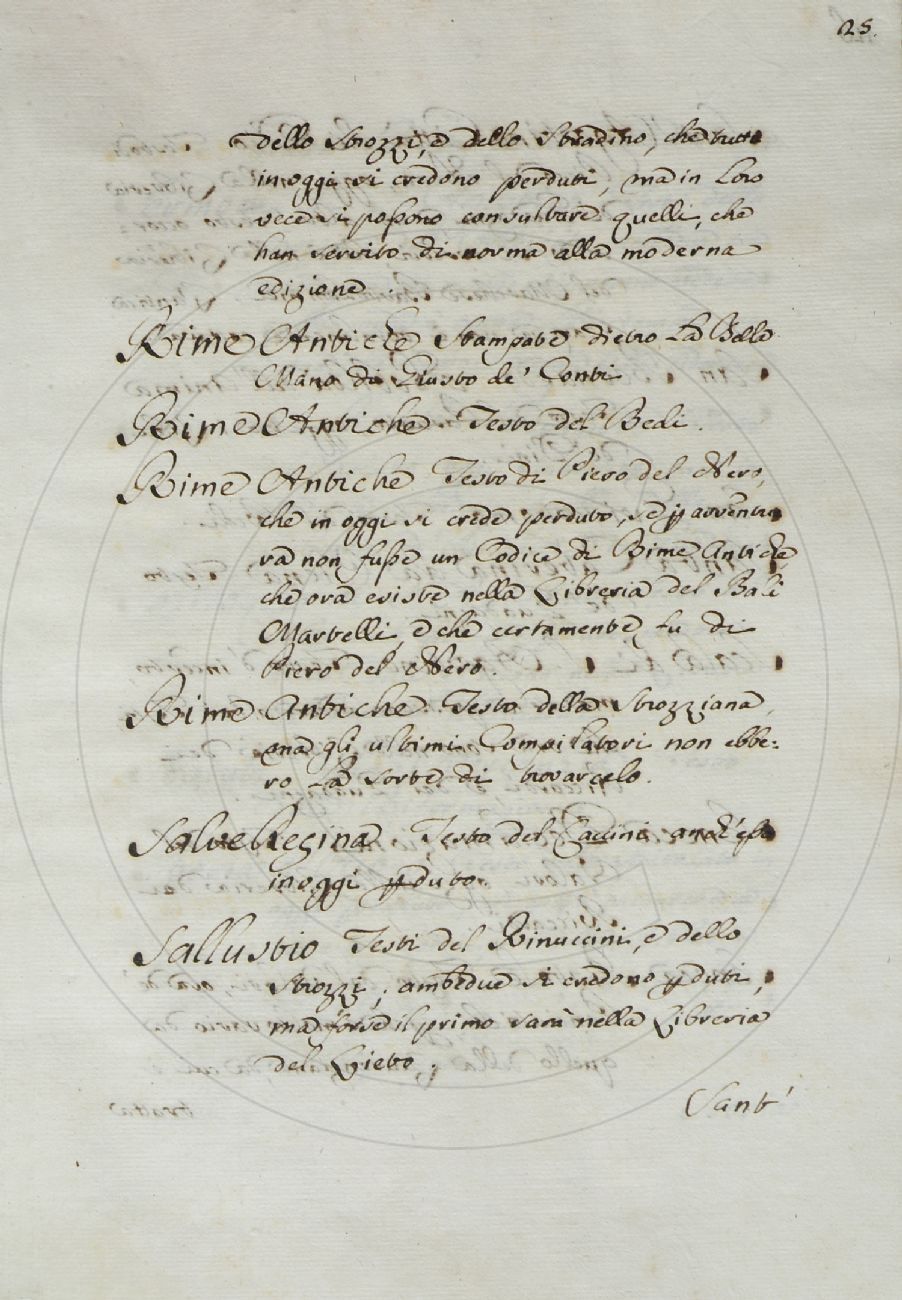 25.
dello Strozzi, e dello Stradino, che tutti
in oggi si credono perduti, ma in loro
vece si possono consultare quelli, che
han servito di norma alla moderna
edizione.
Rime Antiche Stampate dietro La Bella
Mano di Giusto de' Conti
Rime Antiche Testo del Redi.
Rime Antiche Testo di Piero del Nero,
che in oggi si crede perduto, se p avventu
ra non fusse un Codice di Rime Antiche,
che ora esiste nella Libreria del Balì
Martelli, e che certamente fu di
Piero del Nero.
Rime Antiche. Testo della Strozziana,
ma gli ultimi Compilatori non ebbe:
ro La sorte di trovarcelo.
Salve Regina Testo del Caccini anch'esso
in oggi pduto
Sallustio Testi del Rinuccini, e dello
Strozzi; ambedue si credono pduti,
ma forse il primo sarà nella Libreria
del
Sant'